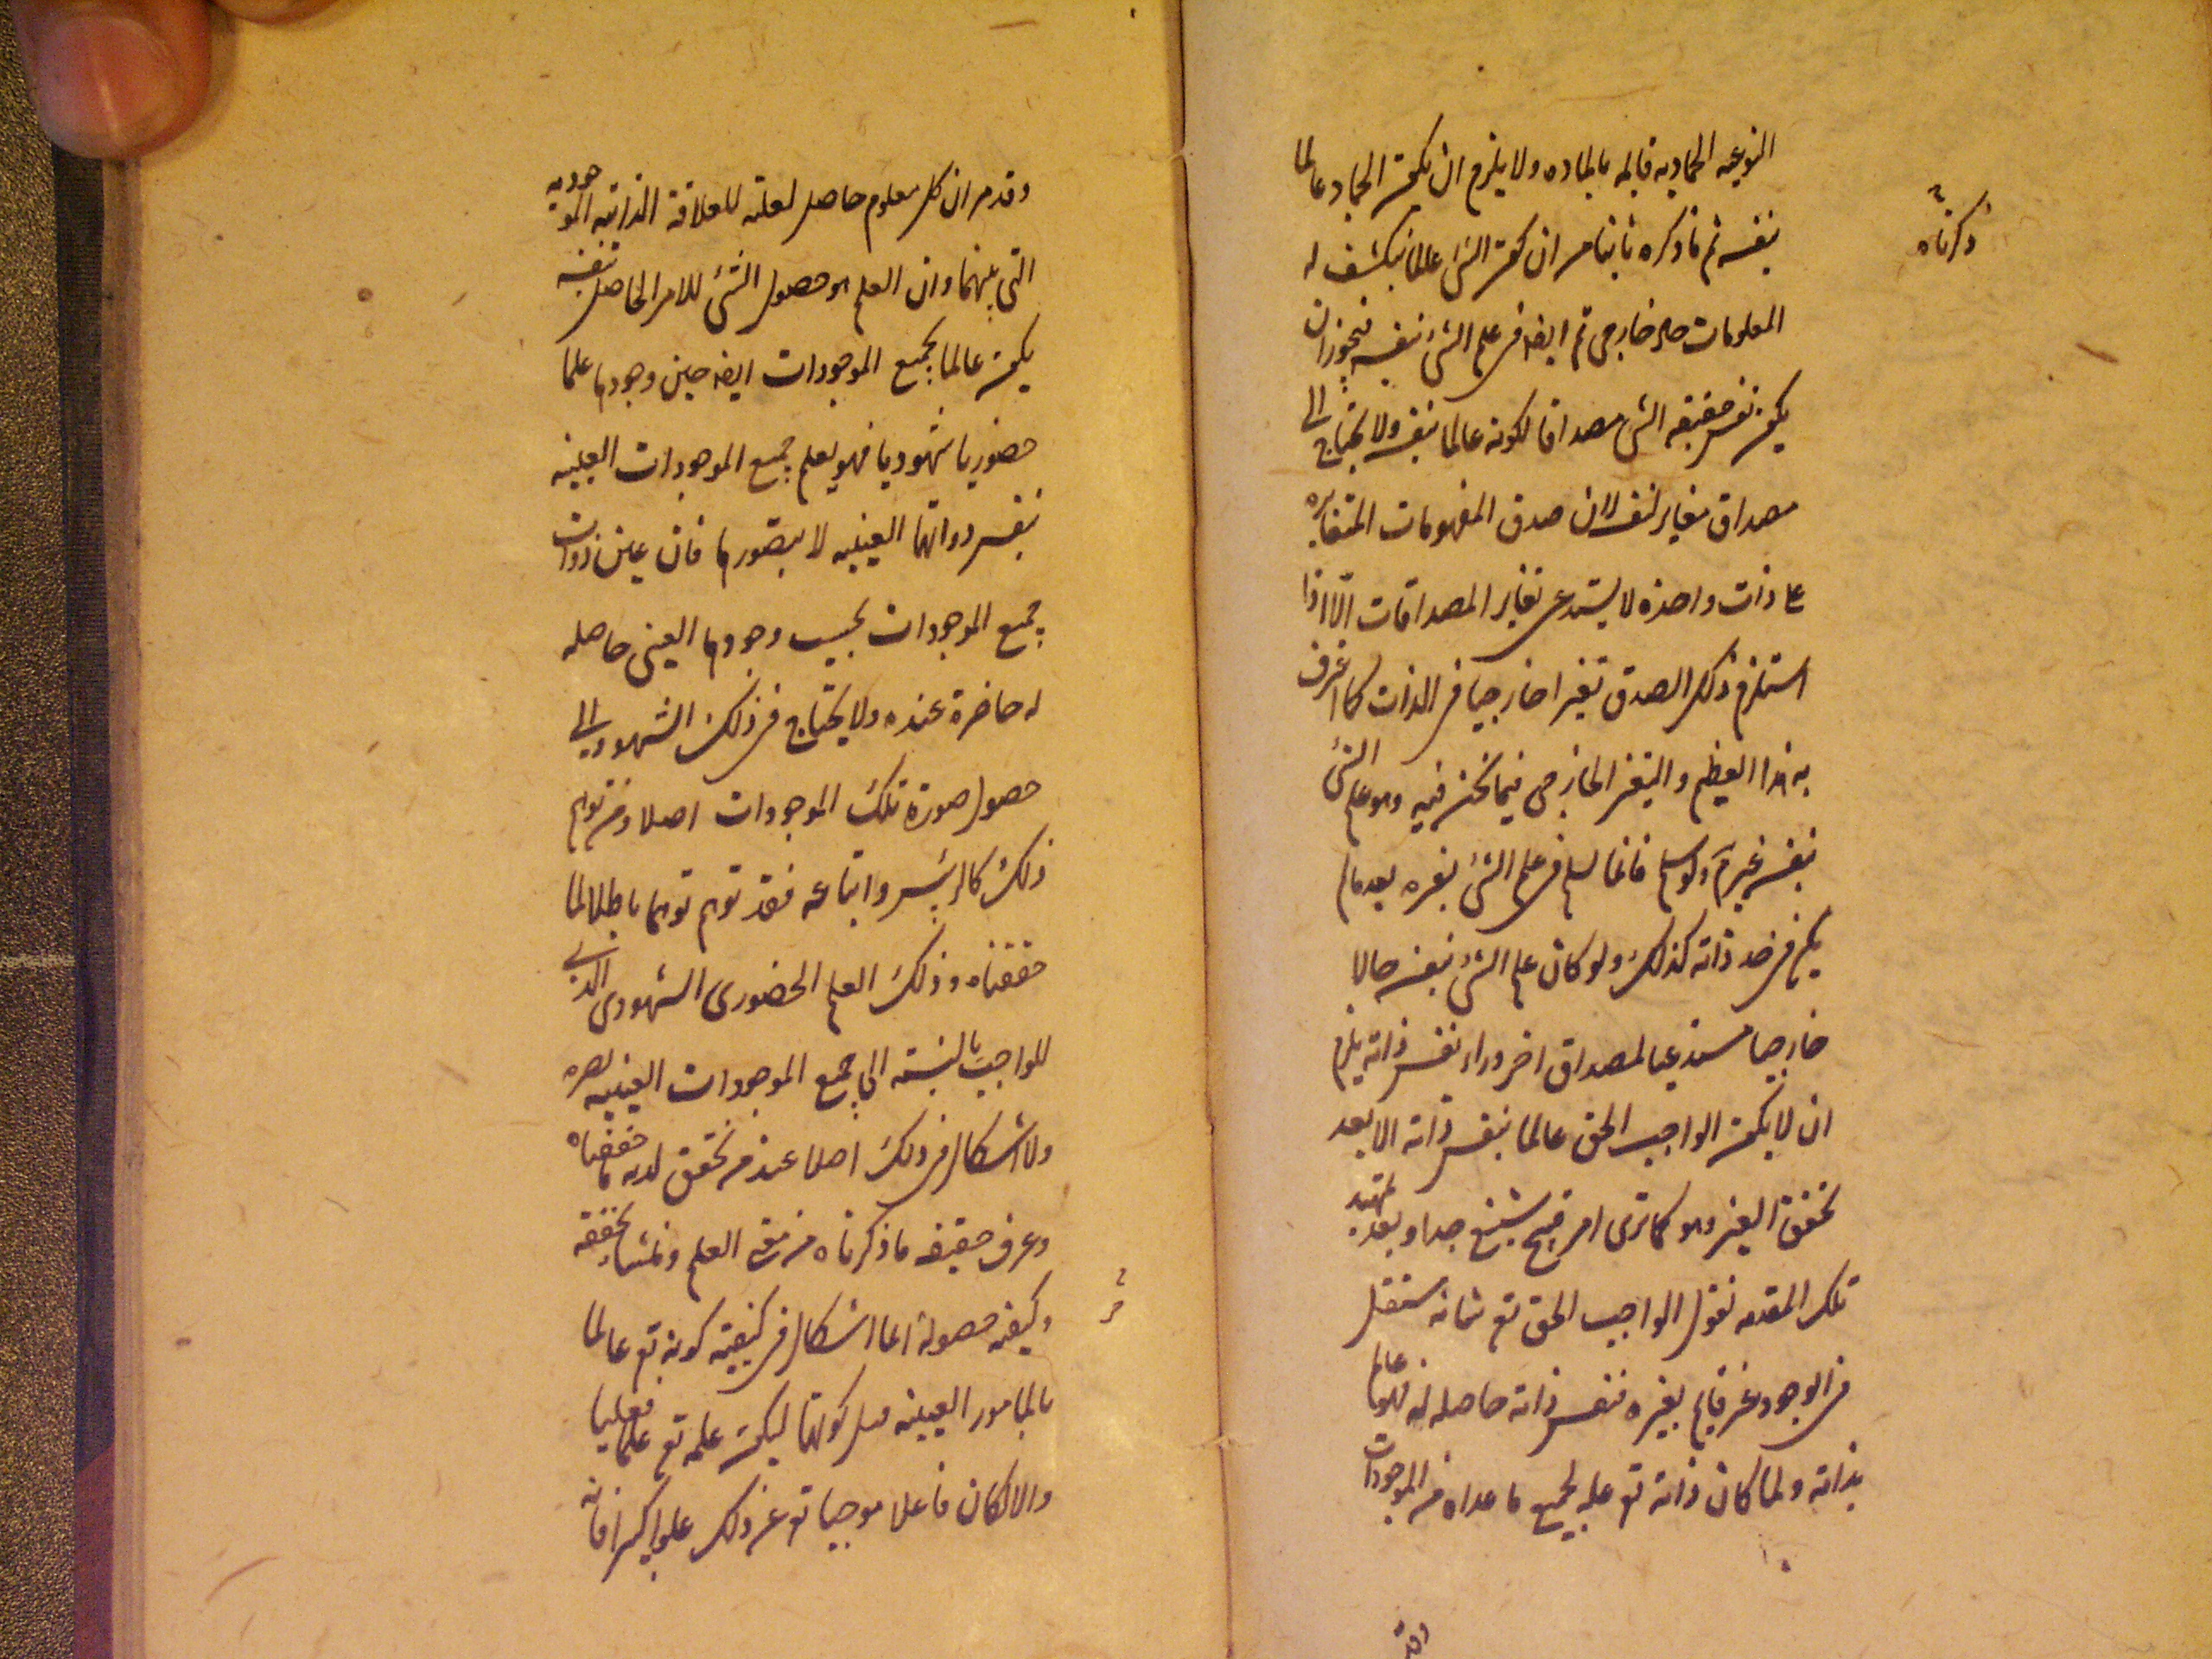 النوعيه الجماديه قايمه بالماده ولا يلزم ان يكون الجماد عالما
بنفسه ثم ما ذكره ثانيا من ان كون الشئ عالما ينكشف له
ذكرناه
المعلومات حال خارجى ثم ايضا فى علم الشئ بنفسه فيجوز ان
يكون نفس حقيقه الشئ مصداقا لكونه عالما بنفسه ولا يحتاج الى
مصداق مغاير لنفسه لان صدق المفهومات المتغايره
على ذات واحده لا يستدعى تغاير المصداقات الا اذا
استلزم ذلك الصدق تغيرا خارجيا فى الذات كما اعترف
به هذا العظيم والتغير الخارجى فيما نحن فيه وهو علم الشئ
بنفسه غير لازم ولو سلم فانما يسلم فى علم الشئ بغيره بعد ما لم
يكن فى حد ذاته كذلك ولو كان علم الشئ بنفسه حالا
خارجيا مستدعيا لمصداق اخر وراء نفس ذاته يلزم
ان لا يكون الواجب الحق عالما بنفس ذاته الا بعد
تحقق الغير وهو كما ترى امر قبيح شنيع جدا وبعد تمهيد
تلك المقدمه نقول الواجب الحق تع شانه مستقل
فى الوجود غير قايم بغيره فنفس ذاته حاصله له فهو عالم
بذاته ولما كان ذاته تع عله لجميع ما عداه من الموجودات
وقد
وقد مر ان كل معلوم حاصل لعلته للعلاقة الذاتيه الموجوديه
التى بينهما وان العلم هو حصول الشئ للامر الحاصل بنفسه
يكون عالما بجميع الموجودات ايضا حين وجودها علما
حضوريا شهوديا فهو يعلم جميع الموجودات العينيه
بنفس ذواتها العينيه لا بتصورها فان عين ذوات
جميع الموجودات بحسب وجودها العينى حاصله
له حاضرة عنده ولا يحتاج فى ذلك الشهود الى
حصول صورة تلك الموجودات اصلا ومن توهم
ذلك كالرئيس واتباعه فقد توهم توهما باطلا لما
حققناه وذلك العلم الحضورى الشهودى الذى
للواجب بالنسبه الى جميع الموجودات العينيه
ولا اشكال فى ذلك اصلا عند من تحقق لديه ما حققناه
وعرف حقيقه ما ذكرناه من معنى العلم ومنشاء تحققه
وكيفيه حصوله انما اشكال فى كيفيته كونه تع عالما
بالامور العينيه قبل كونها ليكون علمه تع علما فعليا
والا لكان فاعلا موجبا تع عن ذلك علوا كبيرا فانه